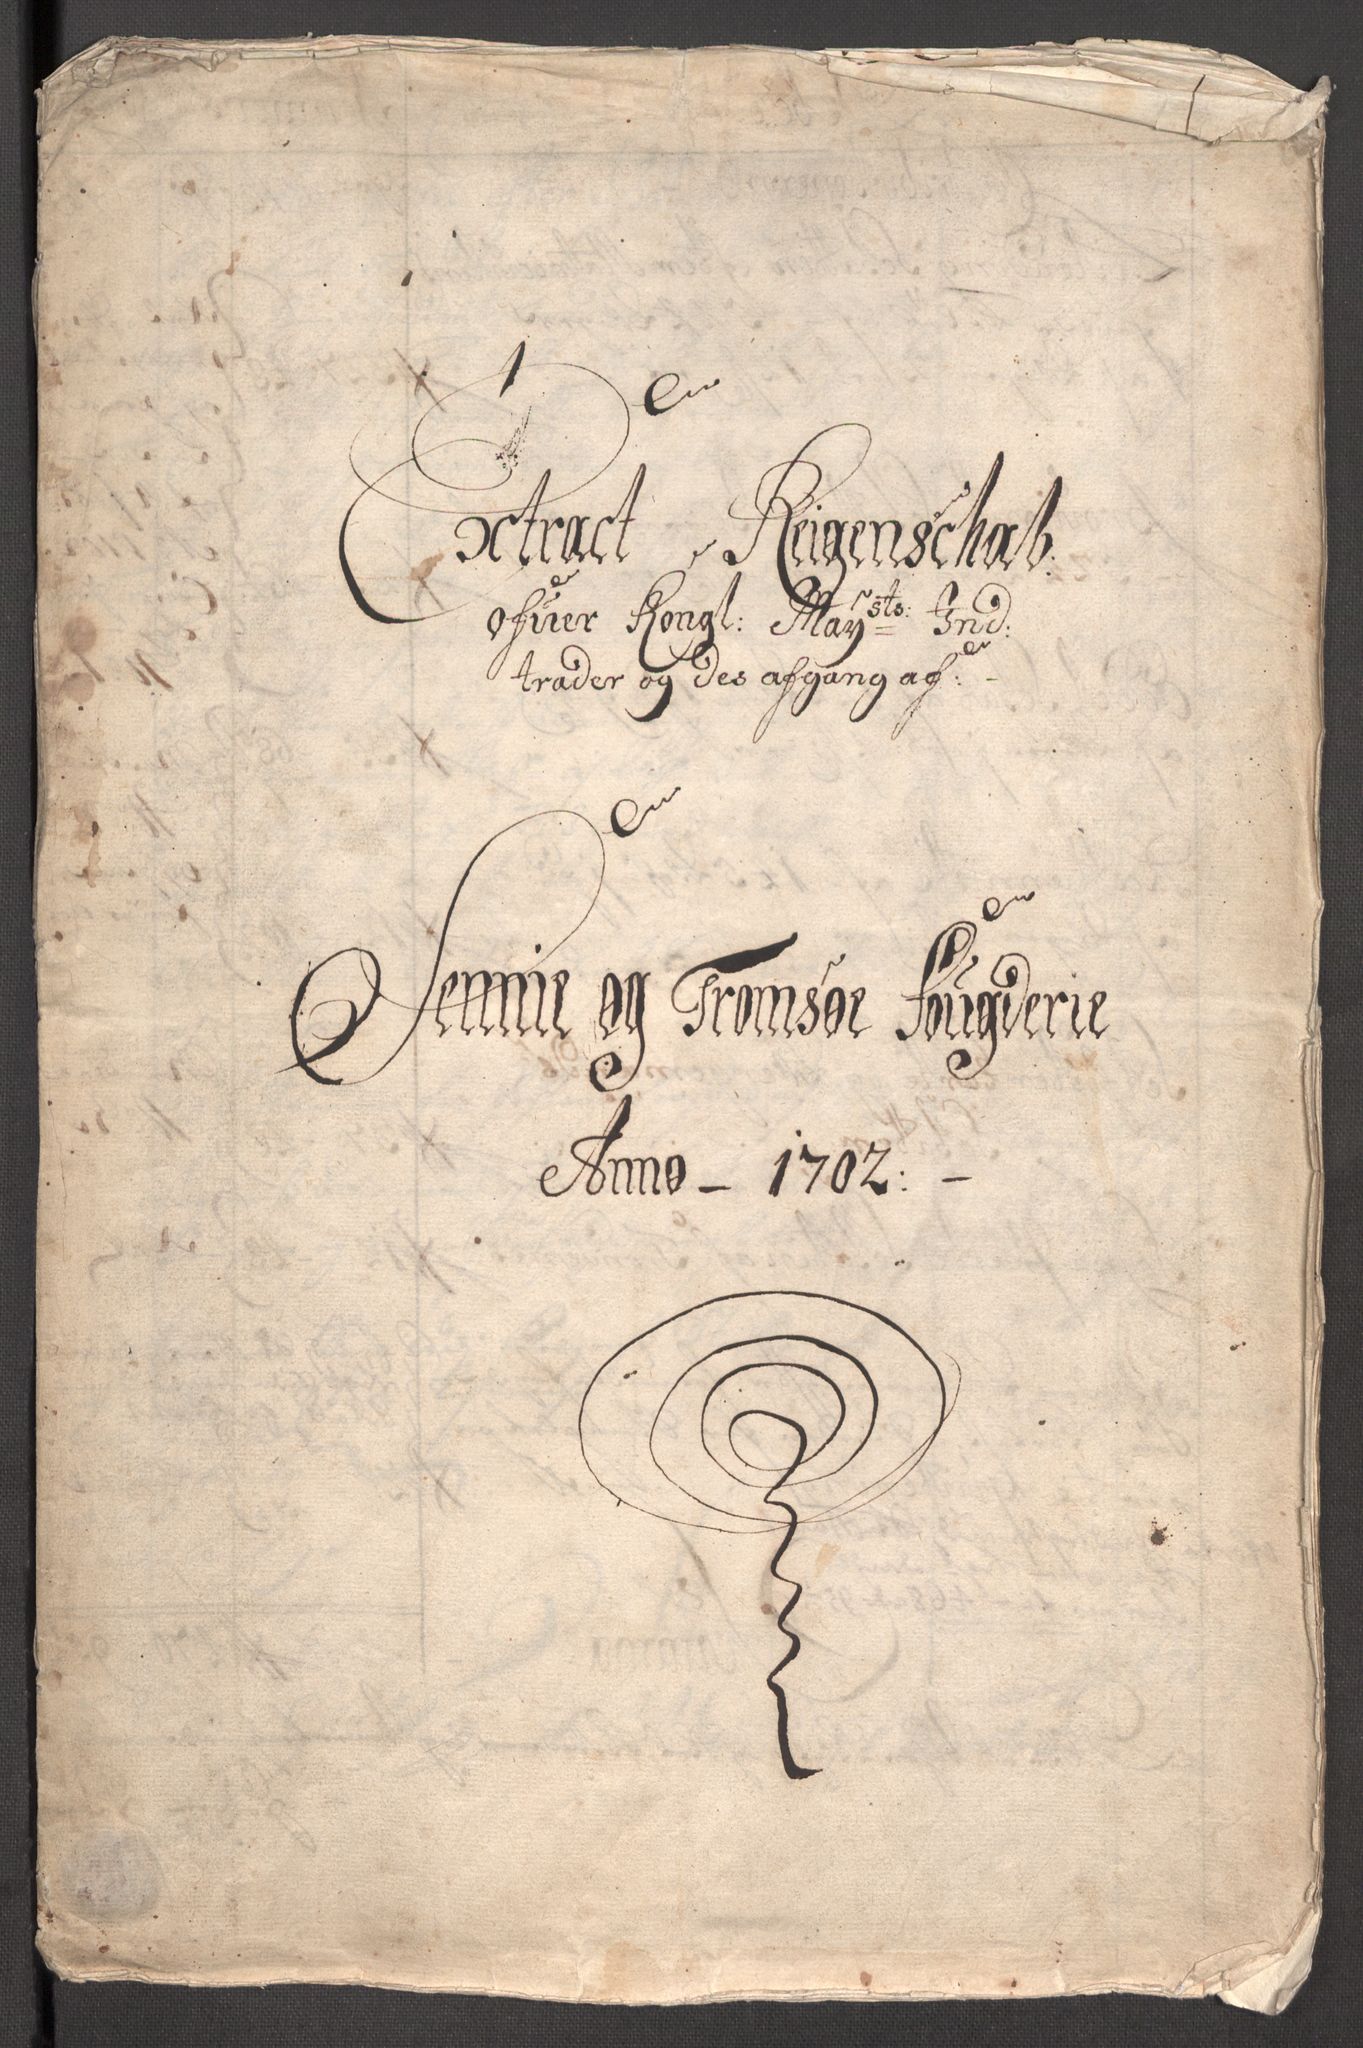 Extract Reigenschab.
ofuer Kongl: Maysts: Ind:
trader og des afgang af: -
Sennie og Tromsøe fougderie
Anno - 1702: -